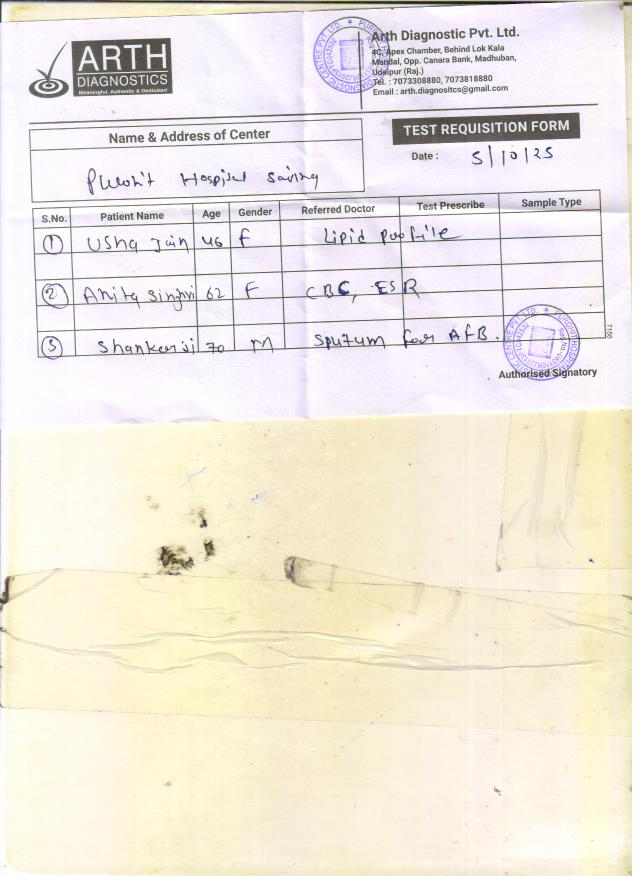 ARTH
DIAGNOSTICS
Meaningful, Authentic & Dedicated
Arth Diagnostic Pvt. Ltd.
4C, Apex Chamber, Behind Lok Kala
Mandal, Opp. Canara Bank, Madhuban,
Udaipur (Raj.)
Tel. : 7073308880, 7073818880
Email : arth.diagnositcs@gmail.com
Name & Address of Center
Hospital
TEST REQUISITION FORM
Date : 5/10/25
S.No. Patient Name Age Gender Referred Doctor Test Prescribe Sample Type
1 Usha Jain 46 F Lipid Profile
2 Anita Singhvi 62 F CBC, ESR
3 Shankarji 70 M Sputum for AFB.
7100
Authorised Signatory